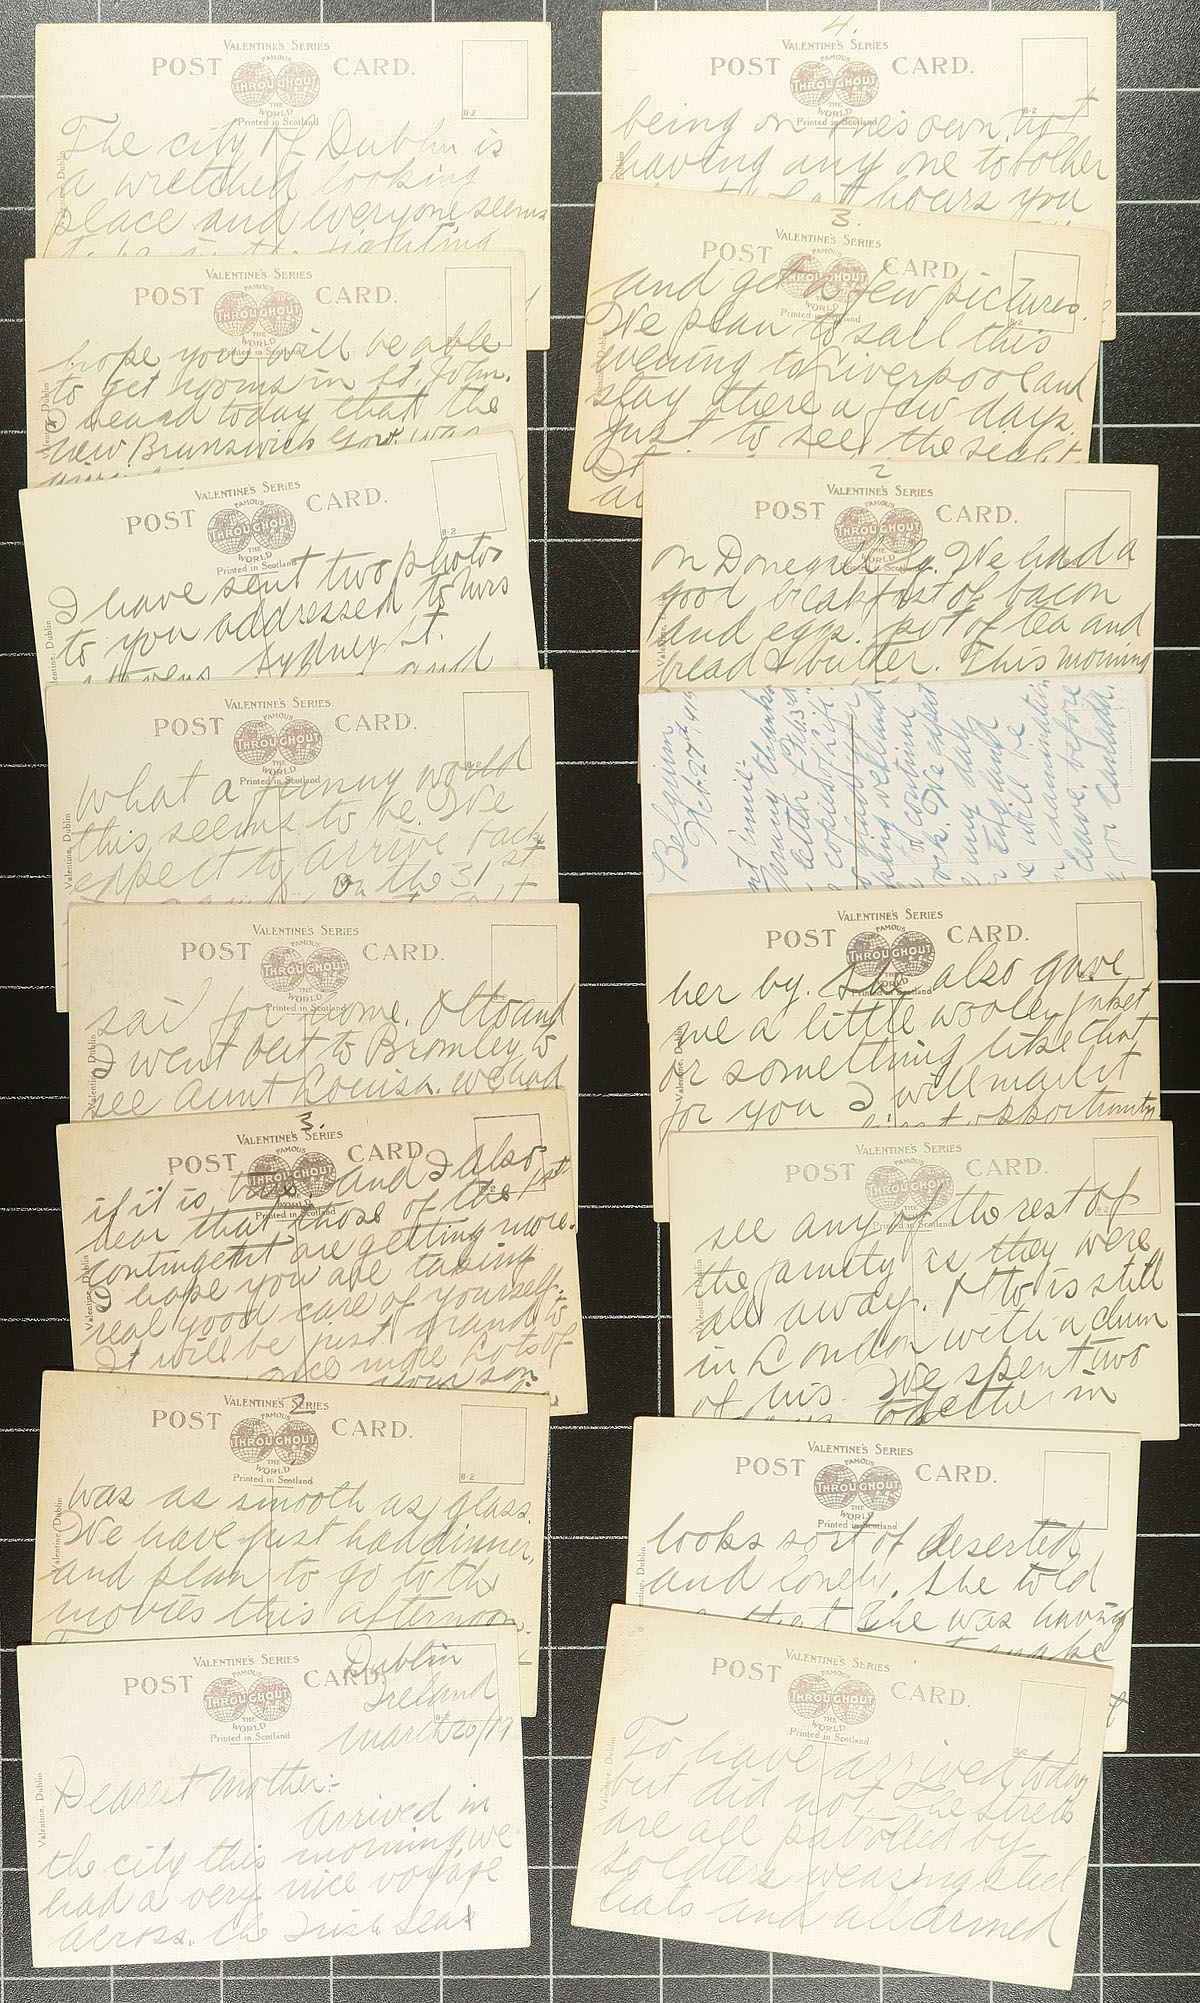 VALENTINE'S SERIES
POST CARD.
FAMOUS
THROUGHOUT
THE
WORLD
Printed in Scotland
B-2
The city of Dublin is
a wretched looking
place and everyone seems
to be in the fighting
VALENTINE'S SERIES
POST CARD.
FAMOUS
THROUGHOUT
THE
WORLD
Printed in Scotland
Valentine, Dublin
hope you will be able
to get rooms in St. John.
I heard today that the
New Brunswick Gov. was
VALENTINE'S SERIES
POST CARD.
FAMOUS
THROUGHOUT
THE
WORLD
Printed in Scotland
B-2
Valentine, Dublin
I have sent two photos
to you addressed to Mrs
Stevens Sydney St.
and
VALENTINE'S SERIES
POST CARD.
FAMOUS
THROUGHOUT
THE
WORLD
Printed in Scotland
B-2
Valentine, Dublin
What a funny world
this seems to be. We
expect to arrive back
on the 31st
VALENTINE'S SERIES
POST CARD.
FAMOUS
THROUGHOUT
THE
WORLD
Printed in Scotland
Valentine, Dublin
sail for home. Otto and
I went out to Bromley to
see Aunt Louisa. We had
3.
VALENTINE'S SERIES
POST CARD.
FAMOUS
THROUGHOUT
THE
WORLD
Printed in Scotland
Valentine, Dublin
if it is true. And I also
hear that those of the 1st
contingent are getting more.
I hope you are taking
real good care of yourself.
It will be just grand to
once more Lots of
your son
2
VALENTINE'S SERIES
POST CARD.
FAMOUS
THROUGHOUT
THE
WORLD
Printed in Scotland
B-2
Valentine, Dublin
was as smooth as glass.
We have just had dinner,
and plan to go to the
movies this afternoon.
VALENTINE'S SERIES
POST CARD.
FAMOUS
THROUGHOUT
THE
WORLD
Printed in Scotland
B-2
Valentine, Dublin
Dublin
Ireland
March 20/19
Dearest Mother:-
Arrived in
the city this morning we
had a very nice voyage
across. The Irish Sea
4.
VALENTINE'S SERIES
POST CARD.
FAMOUS
THROUGHOUT
THE
WORLD
Printed in Scotland
B-2
being on one's own, not
having any one to bother
hours you
3.
VALENTINE'S SERIES
POST CARD.
FAMOUS
THROUGHOUT
WORLD
Printed in Scotland
B-2
and get a few pictures.
We plan to sail this
evening to Liverpool and
stay there a few days.
Just to see the sights.
2
VALENTINE'S SERIES
POST CARD.
FAMOUS
THROUGHOUT
THE
WORLD
Printed in Scotland
on Donegall Sq. We had a
good breakfast of bacon
and eggs. pot of tea and
bread & butter. This morning
Belgium
Feb. 27th 919
Aunt Annie:-
many thanks
letter of Feb. 3rd
copies of Life.
of continual
work. We expect
any day
England
we will be
examination
leave before
for Canada.
VALENTINE'S SERIES
POST CARD.
FAMOUS
THROUGHOUT
THE
WORLD
Printed in Scotland
Valentine, Dublin
her by. She also gave
me a little wooley jacket
or something like that
for you I will mail it
first opportunity
VALENTINE'S SERIES
POST CARD.
FAMOUS
THROUGHOUT
THE
WORLD
Printed in Scotland
B-2
Valentine, Dublin
see any of the rest of
the family as they were
all away. Otto is still
in London with a chum
of his. We spent two
days together in
VALENTINE'S SERIES
POST CARD.
FAMOUS
THROUGHOUT
THE
WORLD
Printed in Scotland
Valentine, Dublin
looks sort of deserted
and lonely. She told
that she was having
VALENTINE'S SERIES
POST CARD.
FAMOUS
THROUGHOUT
THE
WORLD
Printed in Scotland
B-2
Valentine, Dublin
To have arrived today
but did not. The streets
are all patrolled by
soldiers wearing steel
hats and all armed